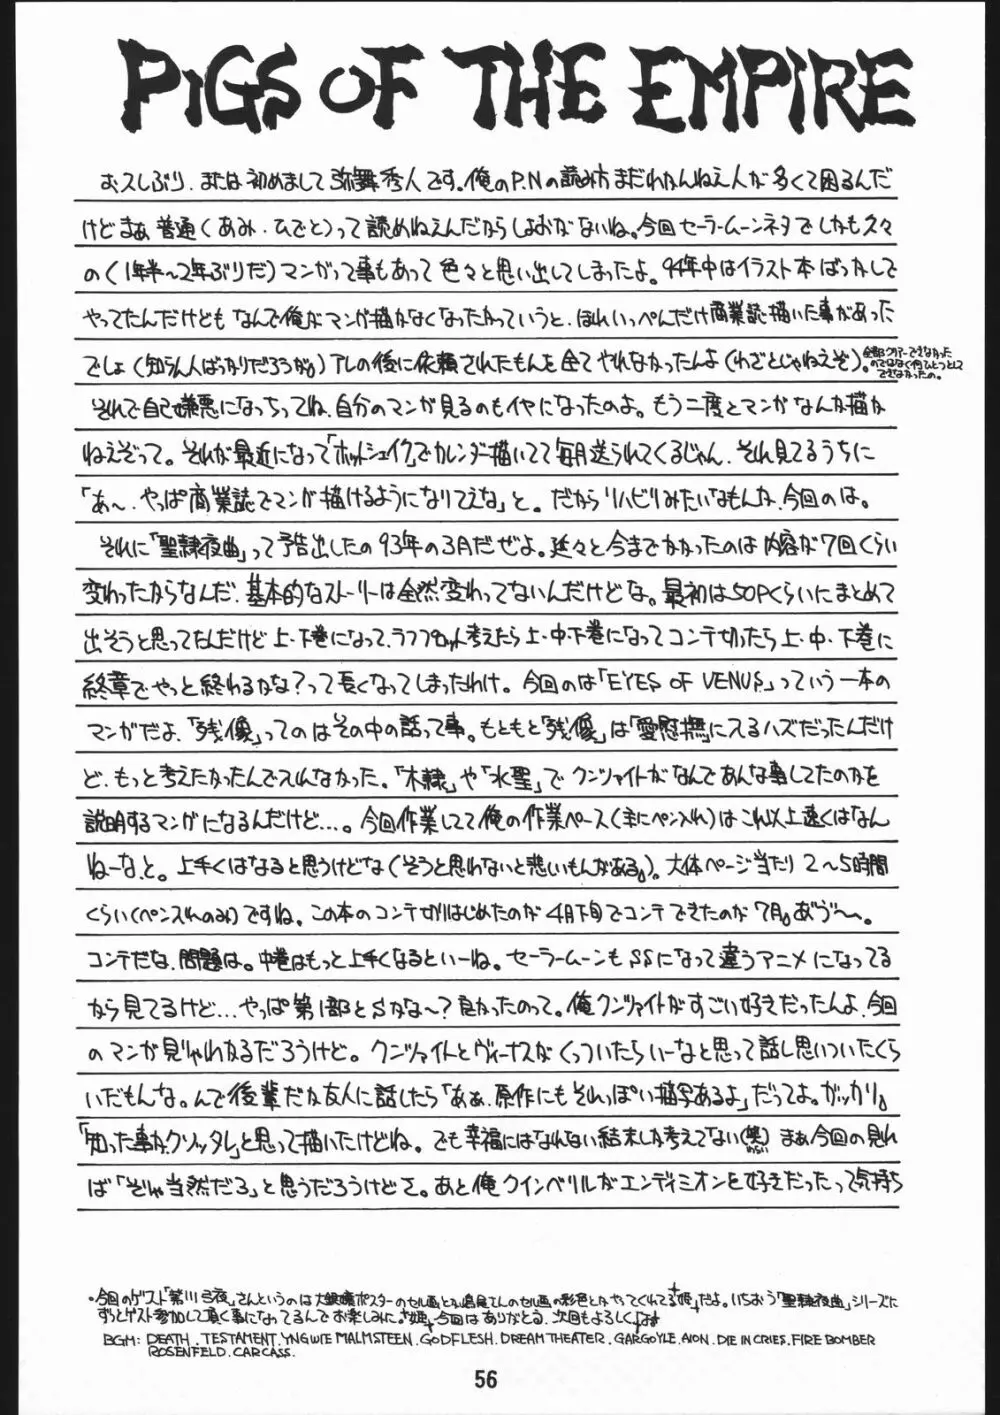 PIGS OF THE EMPIRE
お久しぶり、または初めまして弥舞秀人です。俺のP.Nの読み方まだわかんねえ人が多くて困るんだ
けどまぁ普通(あみ・ひでと)って読めねえんだからしょおがないね。今回セーラームーンネタでしかも久々
の(1年半〜2年ぶりだ)マンガって事もあって色々と思い出してしまったよ。94年中はイラスト本ばっかして
やってたんだけどもなんで俺がマンガ描かなくなったかっていうと、ほれいっぺんだけ商業誌描いた事があった
でしょ(知らん人ばっかりだろうが。)TLの後に依頼されたもんを全てやれなかったんよ(わざとじゃねえぞ)。
全部クリアーできなかった
のではなく何ひとつとして
できなかったの。
それで自己嫌悪になっちってね、自分のマンガ見るのもイヤになったのよ。もう二度とマンガなんか描か
ねえぞって。それが最近になって「ホットシェイク」でカレンダー描いてて毎月送られてくるじゃん、それ見てるうちに
「あ〜、やっぱ商業誌でマンガ描けるようになりてえな」と。だからリハビリみたいなもんか、今回のは。
それに「聖隷夜曲」って予告出したの93年の3月だぜよ。延々と今までかかったのは内容が7回くらい
変わったからなんだ、基本的なストーリーは全然変わってないんだけどな。最初は50Pくらいにまとめて
出そうと思ってたんだけど上・下巻になって、ラフプロット考えたら上・中・下巻になってコンテ切ったら上・中・下巻に
終章でやっと終わるかな?って長くなってしまったわけ。今回のは「EYES OF VENUS」っていう一本の
マンガだよ、「残像」ってのはその中の話って事。もともと「残像」は「愛慰撫」に入るハズだったんだけ
ど、もっと考えたかったんで入れなかった。「木隷」や「水聖」でクンツァイトがなんであんな事してたのかを
説明するマンガになるんだけど…。今回作業してて俺の作業ペース(主にペン入れ)はこれ以上速くはなん
ねーな、と。上手くはなると思うけどな(そうと思わないと悲しいもんがある。)。大体ページ当たり2〜5時間
くらい(ペン入れのみ)ですね。この本のコンテ切りはじめたのが4月下旬でコンテできたのが7月。あ゛う゛〜。
コンテだな、問題は。中巻はもっと上手くなるといーね。セーラームーンもSSになって違うアニメになってる
から見てるけど…やっぱ第1部とSかな〜?良かったのって。俺クンツァイトがすごい好きだったんよ、今回
のマンガ見じゃわかるだろうけど。クンツァイトとヴィーナスがくっついたらいーなと思って話し思いついたくら
いだもんな。んで後輩だか友人に話したら「あぁ、原作にもそれっぽい描写あるよ」だってよ。ガッカリ。
「知った事か、クソッタレ」と思って描いたけどね。でも幸福にはなれない結末しか考えてない(笑)まぁ今回の見れ
わらい
ば「そりゃ当然だろ」と思うだろうけどさ。あと俺クインベリルがエンディミオンを好きだったって気持ち
・今回のゲスト「紫川弓夜」さんというのは大銀嬢ポスターのセル画とか島尾さんのセル画の彩色とかやってくれてる姫だよ。いちおう「聖隷夜曲」シリーズに
ずっとゲスト参加して頂く事になってるんでお楽しみに。"姫"今回はありがとう、次回もよろしくです
BGM: DEATH. TESTAMENT. YNGWIE MALMSTEEN. GODFLESH. DREAM THEATER. GARGOYLE. AION. DIE IN CRIES. FIRE BOMBER
ROSENFELD. CARCASS.
56